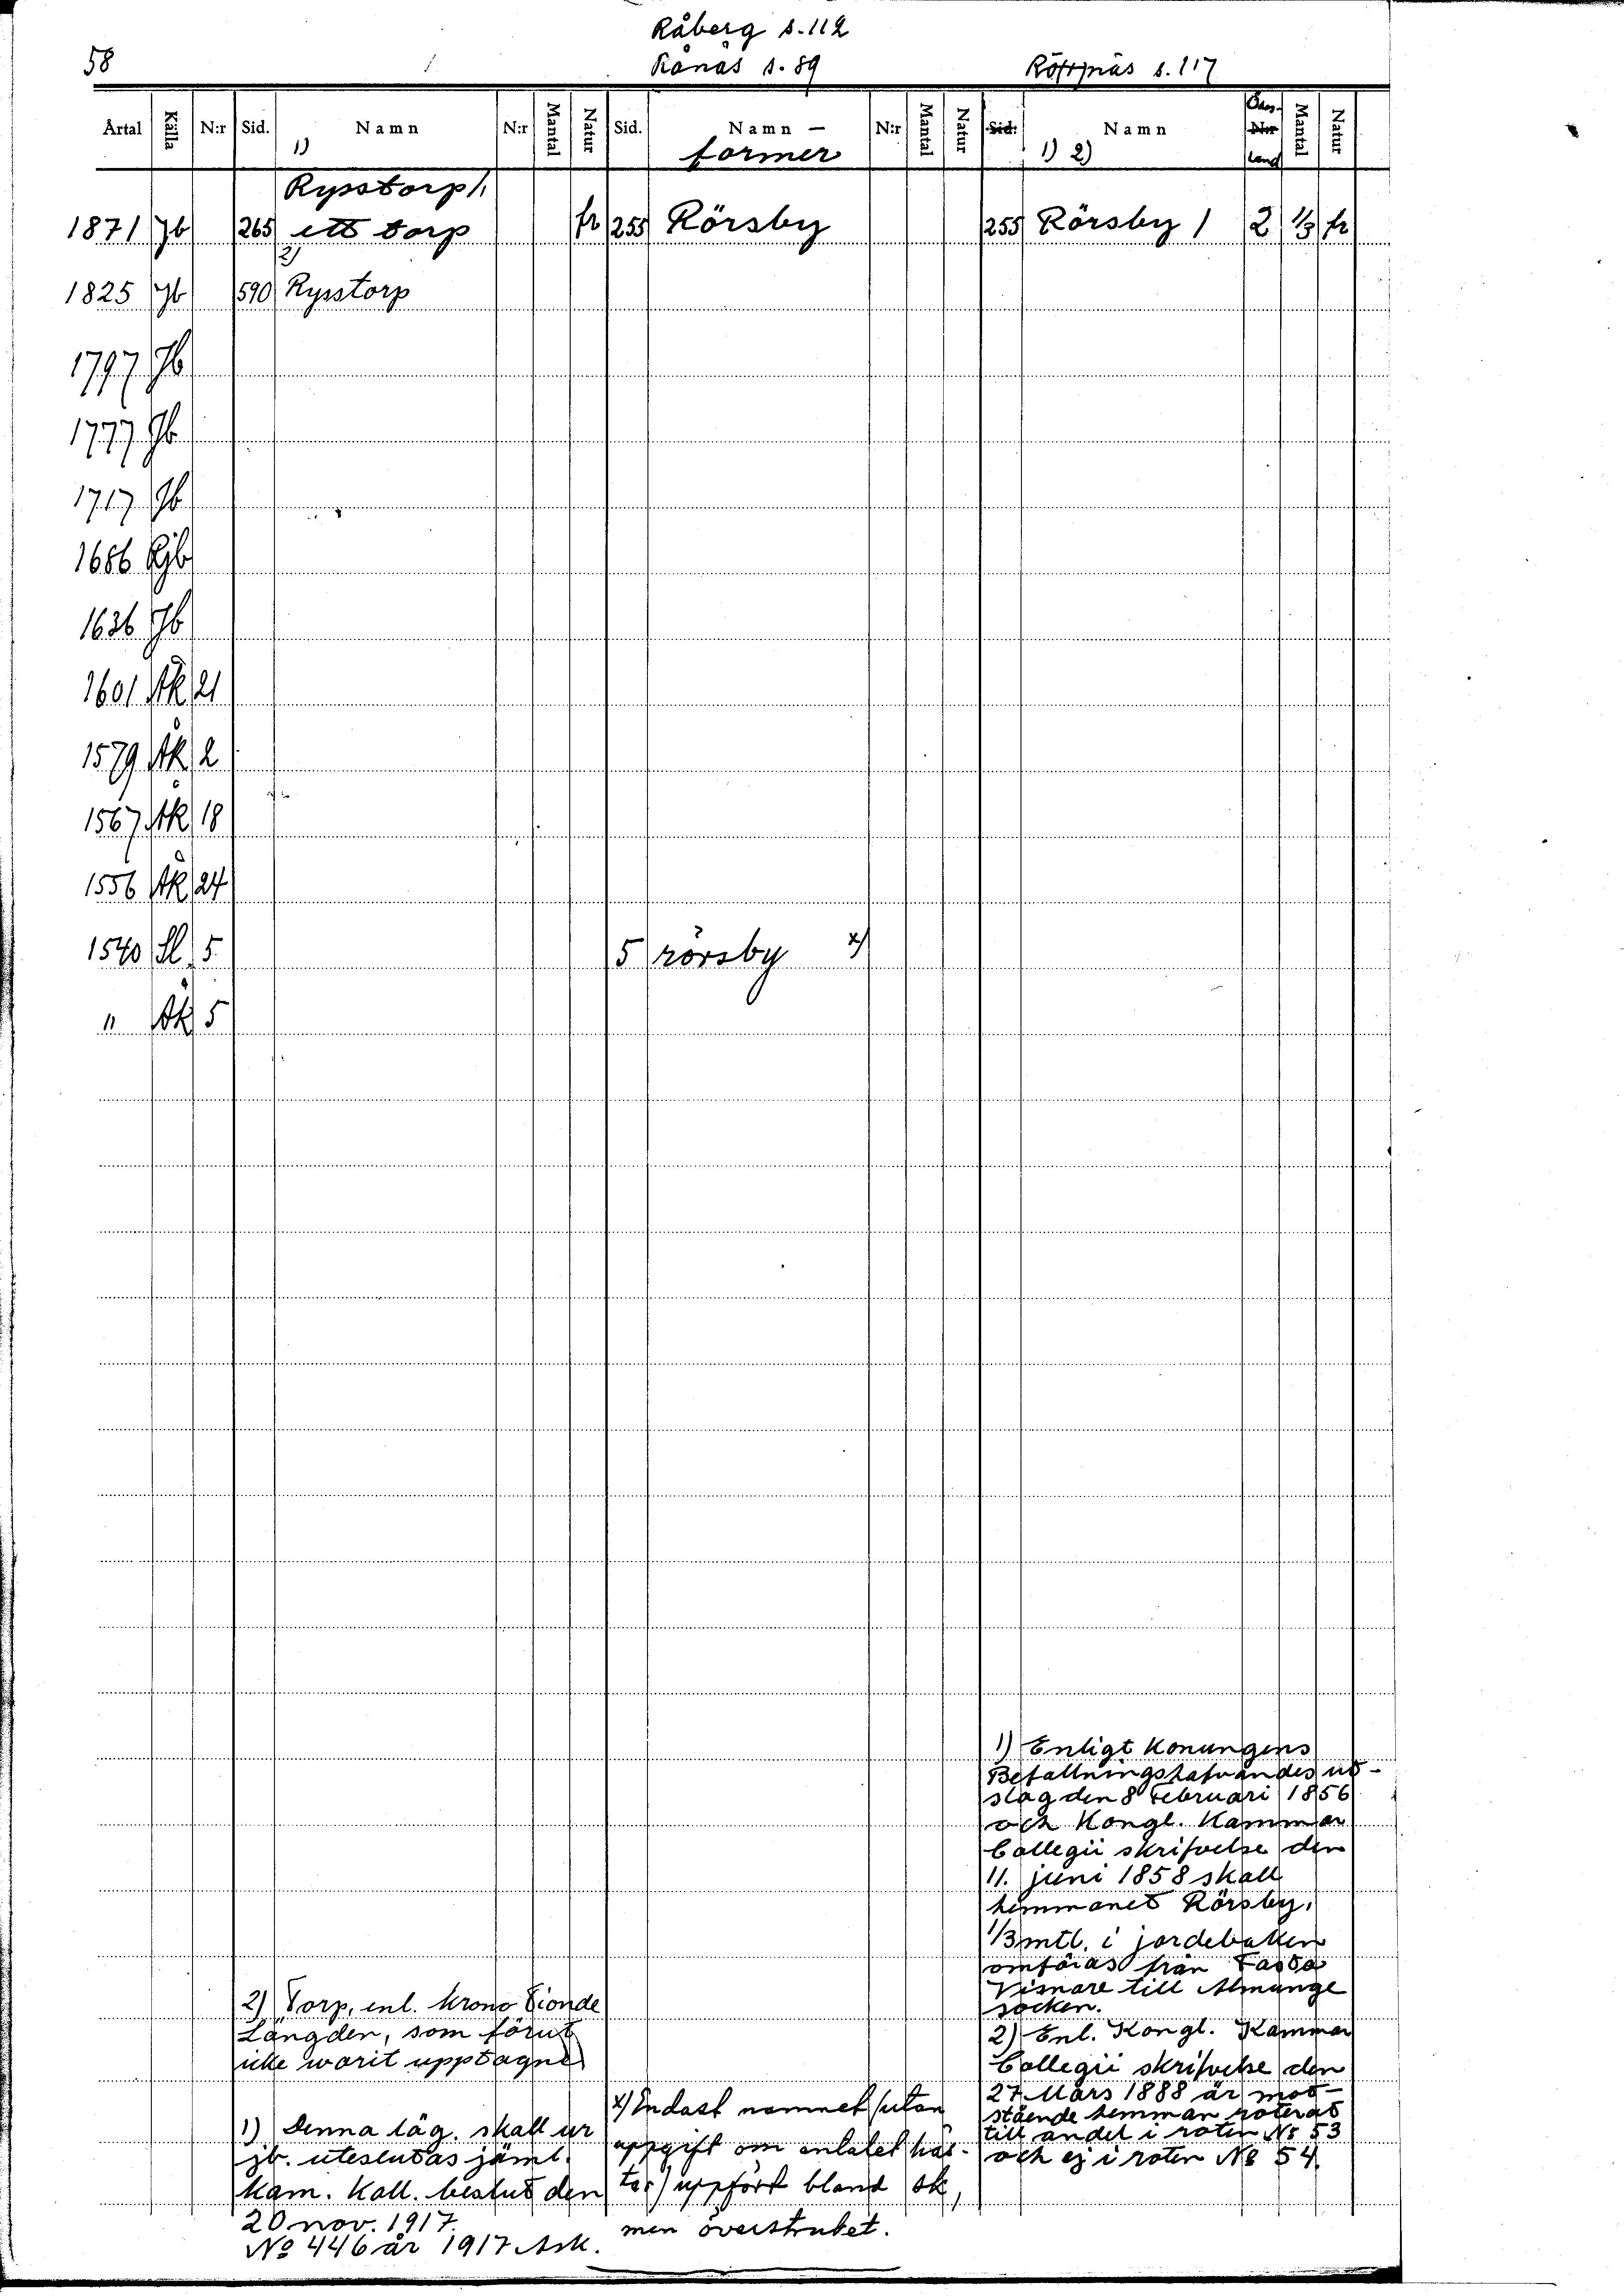 Råberg s. 112
58 Rånäs s. 89 s. 117
Årtal Källa N:r Sid. Namn N:r Mantal Natur Sid. Namn — N:r Mantal Natur Sid. Namn Mantal Natur
1) former 1) 2) land
Rysstorp 1.
1871 Jb 265 ett torp fr 255 Rörsby 255 Rörsby 1 2 1/3 fr
2)
1825 Jb 590 Rysstorp
1797 Jb
1777 Jb
1717 Jb
1686
1636 Jb
1601 Åk 21
1579 Åk 2
1567 Åk 18
1556 Åk 24
1540 Sl 5 5 rörsby x)
" Åk 5
1) Enligt Konungens
Befallningshafvandes ut-
slag den 8 Februari 1856
och Kongl. Kammar
Collegii skrifvelse den
11. juni 1858 skall
hemmanet Rörsby,
1/3 mtl. i jordeboken
omföras från Fasta
Vismare till Almunge
socken.
2) Enl. Kongl. Kammar
Collegii skrifvelse den
27 Mars 1888 är mot-
stående hemman roterat
till andel i roten No 53
och ej i roten No 54.
2) Torp, enl. Krono Tionde
Längden, som förut
icke warit upptagne
1) Denna läg. skall ur
jb. uteslutas jäml.
Kam. Koll. beslut den
20 nov. 1917.
No 446 år 1917 Ask.
x) Endast namnet (utan
uppgift om antalet häs-
tar) uppfört bland sk,
men överstruket.